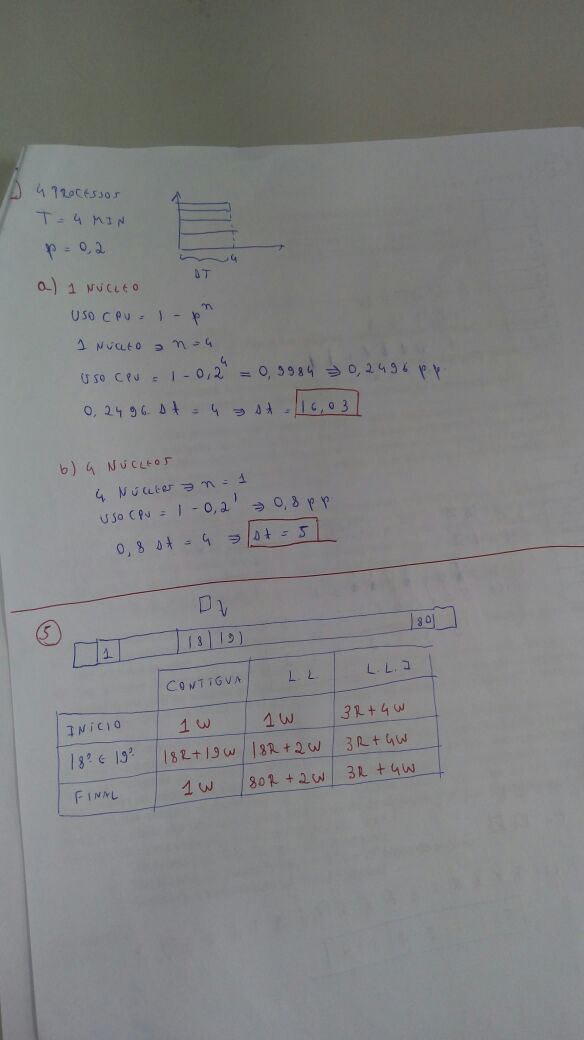 4 PROCESSOS
T = 4 MIN
p = 0,2
4
ΔT
a) 1 NÚCLEO
USO CPU = 1 - pⁿ
1 NÚCLEO ⇒ n = 4
USO CPU = 1 - 0,2⁴ = 0,9984 ⇒ 0,2496 p.p.
0,2496. Δt = 4 ⇒ Δt = 16,03
b) 4 NÚCLEOS
4 NÚCLEOS ⇒ n = 1
USO CPU = 1 - 0,2¹ ⇒ 0,8 pp
0,8 Δt = 4 ⇒ Δt = 5
5
1 18 19 80
CONTÍGUA L.L. L.L.I
INÍCIO 1W 1W 3R+4W
18º E 19º 18R+19W 18R+2W 3R+4W
FINAL 1W 80R+2W 3R+4W